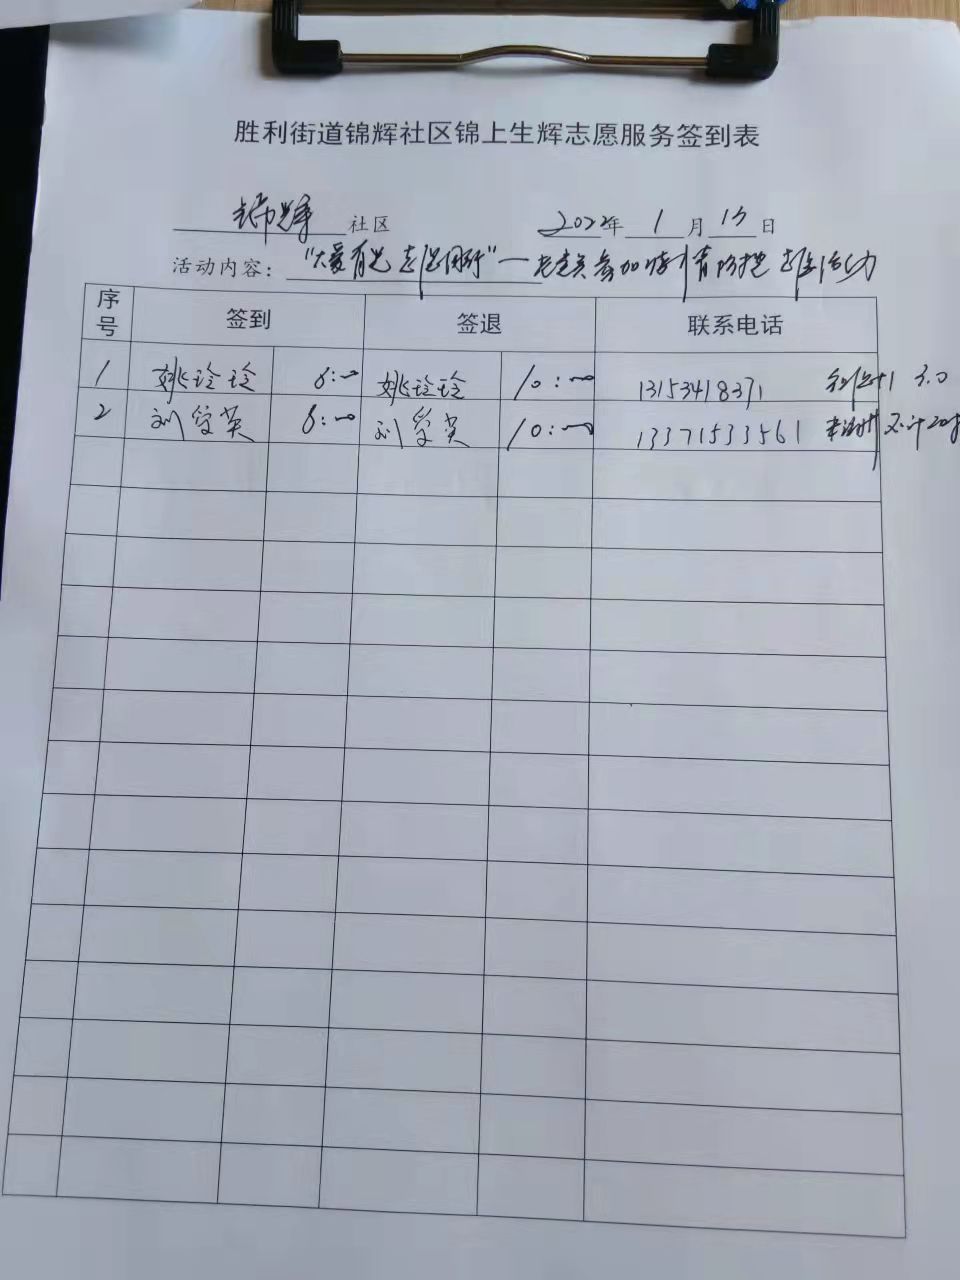 胜利街道锦辉社区锦上生辉志愿服务签到表
锦辉 社区 2022年 1 月 13 日
活动内容：“大爱有光 志愿同行”一老党员参加疫情防控志愿活动
序号 签到 签退 联系电话
1 姚玲玲 8:00 姚玲玲 10:00 13153418371
2 刘爱英 8:00 刘爱英 10:00 13371533561